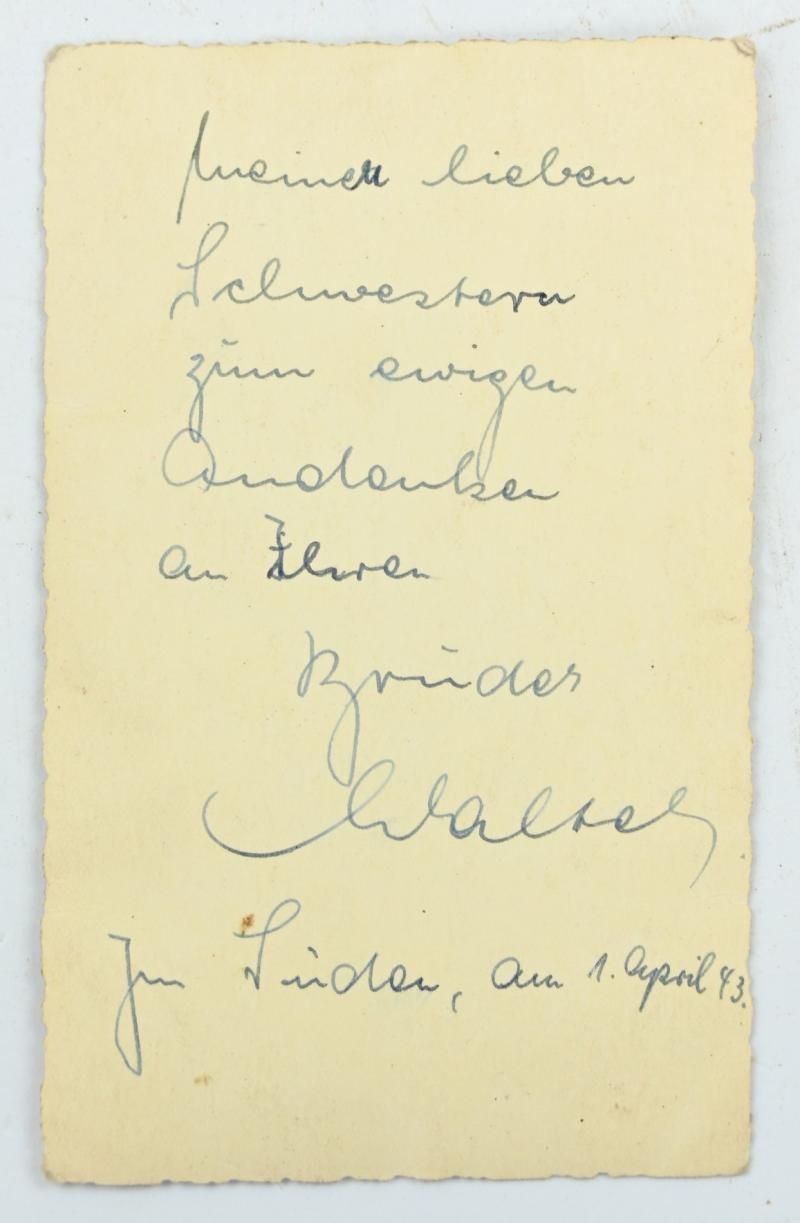 Meinen lieben
Schwestern
zum ewigen
Andenken
an Ihren
Bruder
Walter
Im Süden, am 1. April 43.